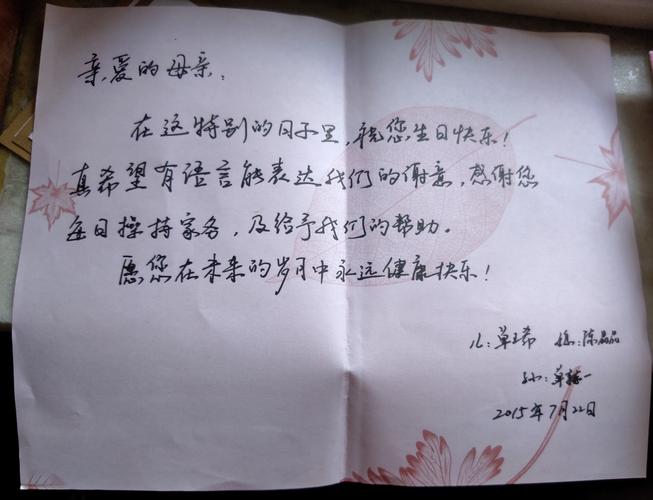 亲爱的母亲:
在这特别的日子里,祝您生日快乐!
真希望有语言能表达我们的谢意,感谢您
每日操持家务,及给予我们的帮助。
愿您在未来的岁月中永远健康快乐!
儿:单玉希 媳:陈晶晶
孙:单
2015年7月22日